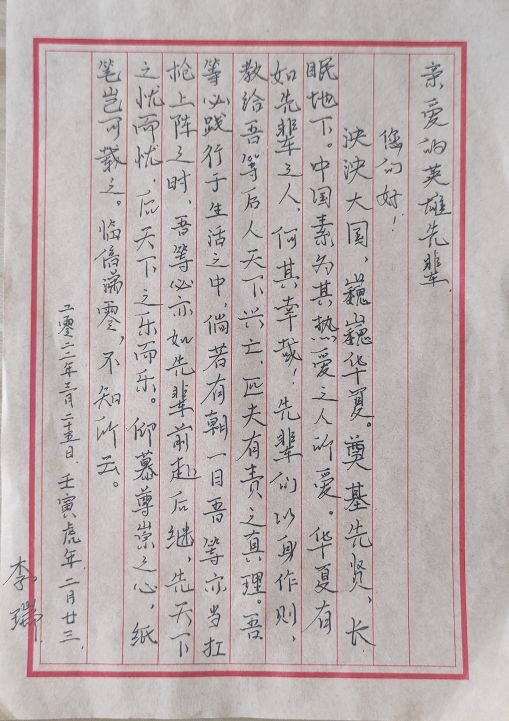 亲爱的英雄先辈,
您们好!
泱泱大国,巍巍华夏。奠基先贤,长
眠地下。中国素为其热爱之人所爱。华夏有
如先辈之人,何其幸哉!先辈们以身作则,
教给吾等后人天下兴亡,匹夫有责之真理。吾
等必践行于生活之中,倘若有朝一日吾等亦当扛
枪上阵之时,吾等必亦如先辈前赴后继,先天下
之忧而忧,后天下之乐而乐。仰慕尊崇之心,纸
笔岂可载之。临倍喘零,不知所云。
二零二二年三月二十五日.壬寅虎年.二月廿三.
李瑞